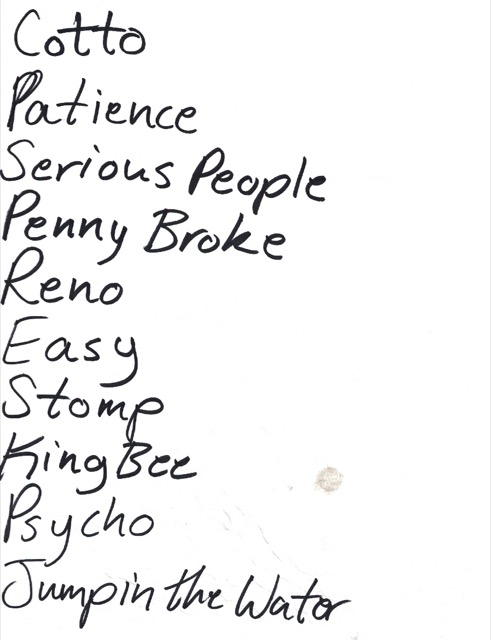 Cotto
Patience
Serious People
Penny Broke
Reno
Easy
Stomp
King Bee
Psycho
Jump in the Water